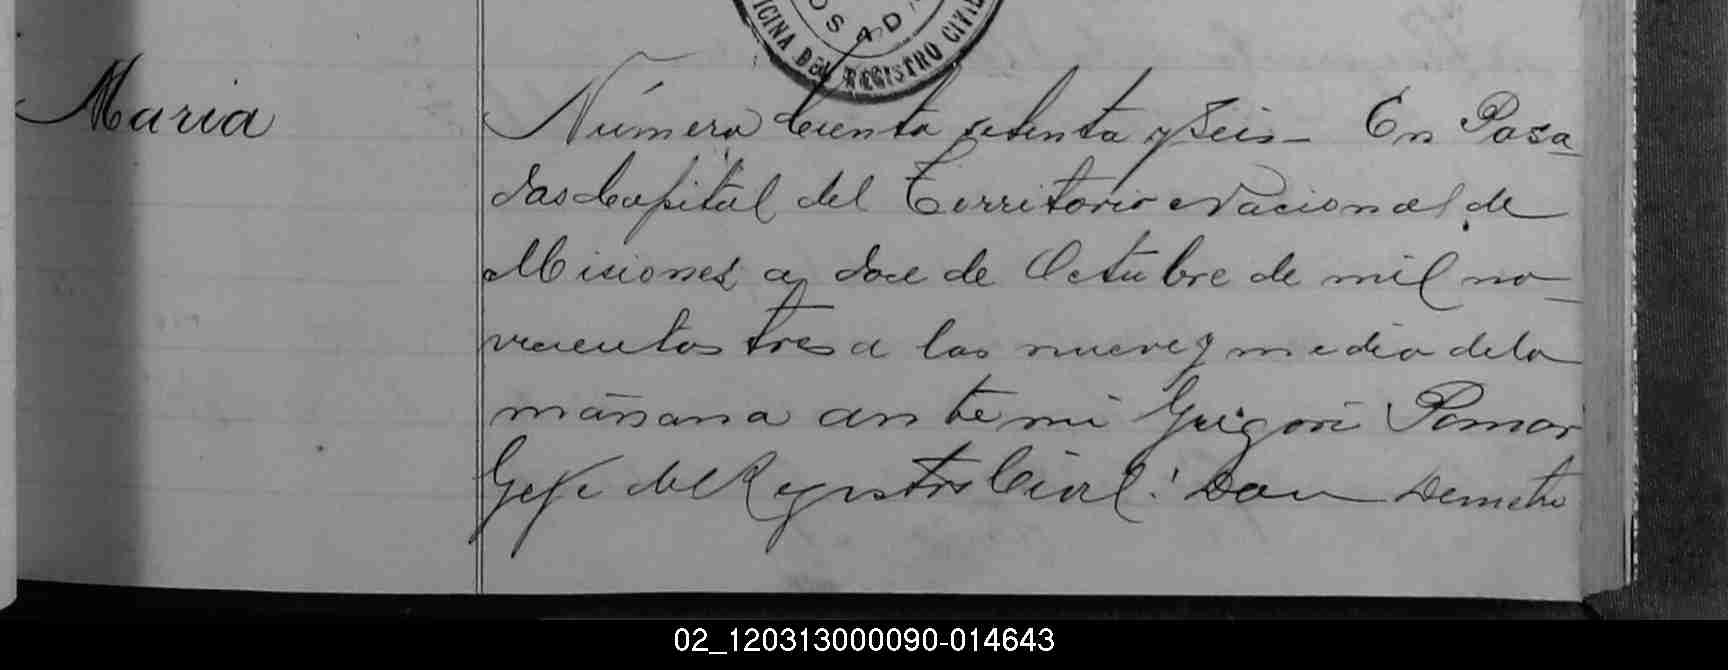 OSADA
OFICINA DEL REGISTRO CIVIL
Maria
Número Ciento setenta y Seis - En Posa-
das Capital del Territorio Nacional de
Misiones a doce de Octubre de mil no-
vecientos tres a las nueve y media de la
mañana ante mi Grigorio Pomar
Gefe del Registro Civil: Don Demetrio
02_120313000090-014643